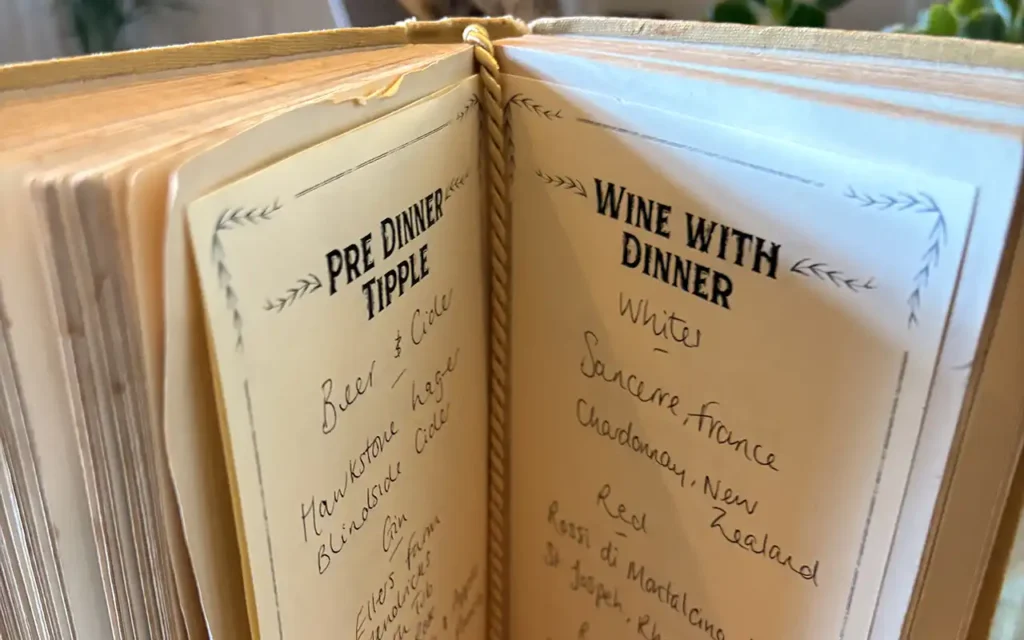 PRE DINNER
TIPPLE
Beer & Cider
Hawkstone Lager
Blindside Cider
Gin
Ellers Farm
Hendricks
WINE WITH
DINNER
Whites
Sancerre, France
Chardonnay, New
Zealand
Red
Rossi di Montalcino
St Joseph, Rh